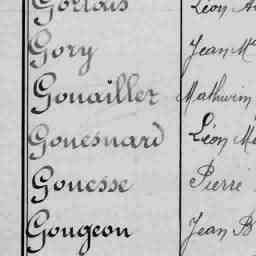 Gorlois Léon
Gory Jean M
Gouailler Mathurin
Gouesnard Léon M
Gouesse Pierre
Gougeon Jean B